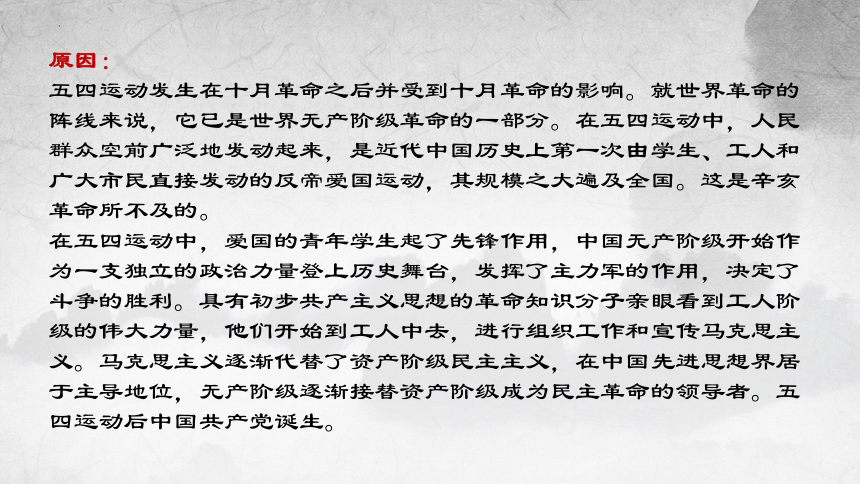 原因：
五四运动发生在十月革命之后并受到十月革命的影响。就世界革命的
阵线来说，它已是世界无产阶级革命的一部分。在五四运动中，人民
群众空前广泛地发动起来，是近代中国历史上第一次由学生、工人和
广大市民直接发动的反帝爱国运动，其规模之大遍及全国。这是辛亥
革命所不及的。
在五四运动中，爱国的青年学生起了先锋作用，中国无产阶级开始作
为一支独立的政治力量登上历史舞台，发挥了主力军的作用，决定了
斗争的胜利。具有初步共产主义思想的革命知识分子亲眼看到工人阶
级的伟大力量，他们开始到工人中去，进行组织工作和宣传马克思主
义。马克思主义逐渐代替了资产阶级民主主义，在中国先进思想界居
于主导地位，无产阶级逐渐接替资产阶级成为民主革命的领导者。五
四运动后中国共产党诞生。